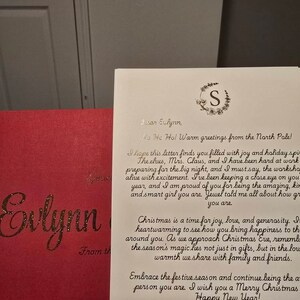 S
Dear Evlynn,
Ho Ho! Warm greetings from the North Pole!
I hope this letter finds you filled with joy and holiday
The elves, Mrs. Claus, and I have been hard at work
preparing for the big night, and I must say, the workshop
alive with excitement. I've been keeping a close eye on you
year, and I am proud of you for being the amazing, kind
and smart girl you are. Jewel told me all about how
you are.
Christmas is a time for joy, love, and generosity.
heartwarming to see how you bring happiness to
around you. As we approach Christmas Eve, remember
the season's magic lies not just in gifts, but in the
warmth we share with family and friends.
Embrace the festive season and continue being the
person you are. I wish you a Merry Christmas
Happy New Year!
Evlynn
From